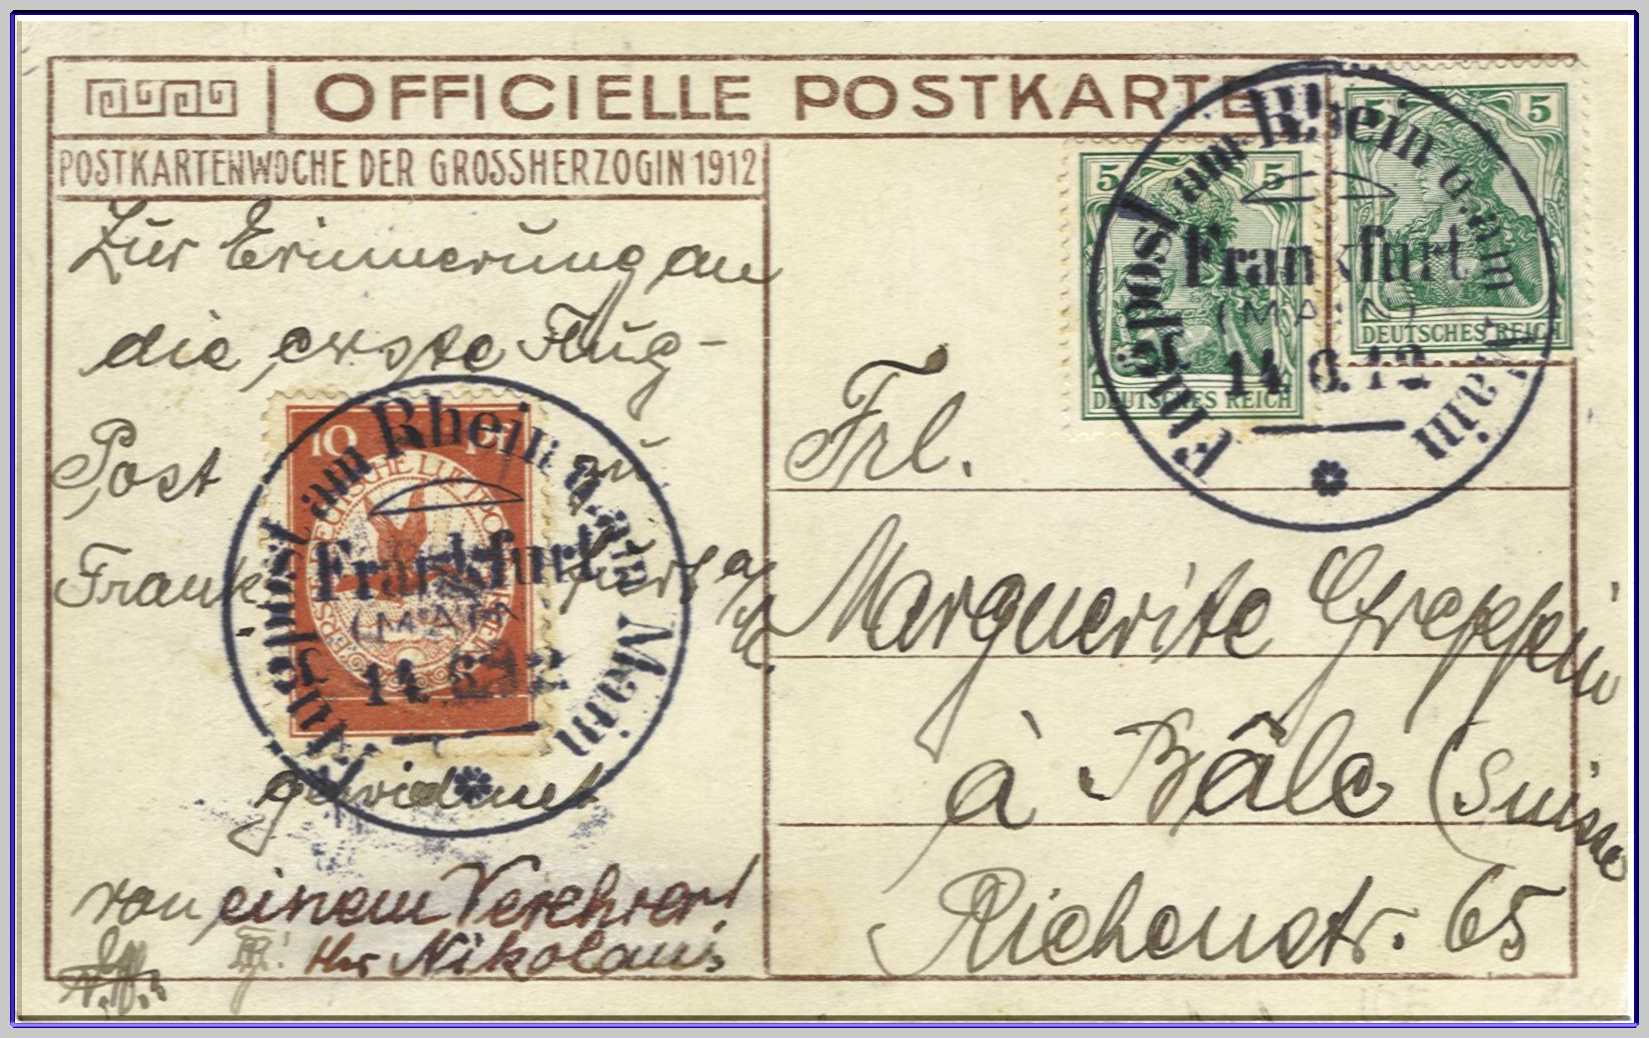 OFFICIELLE POSTKARTE
POSTKARTENWOCHE DER GROSSHERZOGIN 1912
Zur Erinnerung an
die erste Flug-
Post
Frankfurt a/M.
gewidmet
von einem Verehrer!
Ihr Nikolaus
10 Pf
Flugpost am Rhein u. am Main
Frankfurt
(MAIN)
14.6.12
5 5
DEUTSCHES REICH
5 5
DEUTSCHES REICH
Flugpost am Rhein u. am Main
Frankfurt
(MAIN)
14.6.12
Frl.
Marguerite Greppin
à Bâle (Suisse
Riehenstr. 65